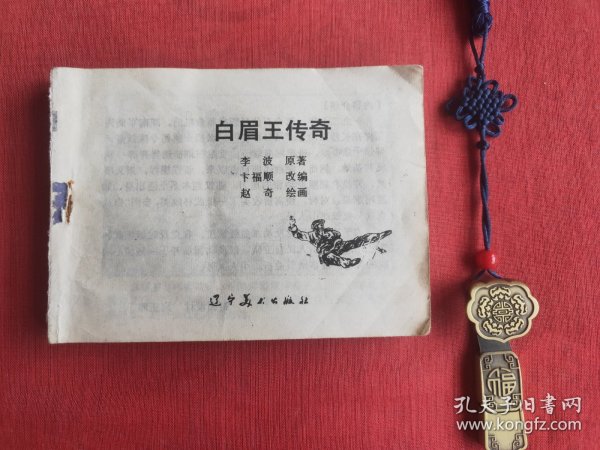 白眉王传奇
李波 原著
卞福顺 改编
赵奇 绘画
辽宁美术出版社
福
孔夫子旧书网
www.kongfz.com